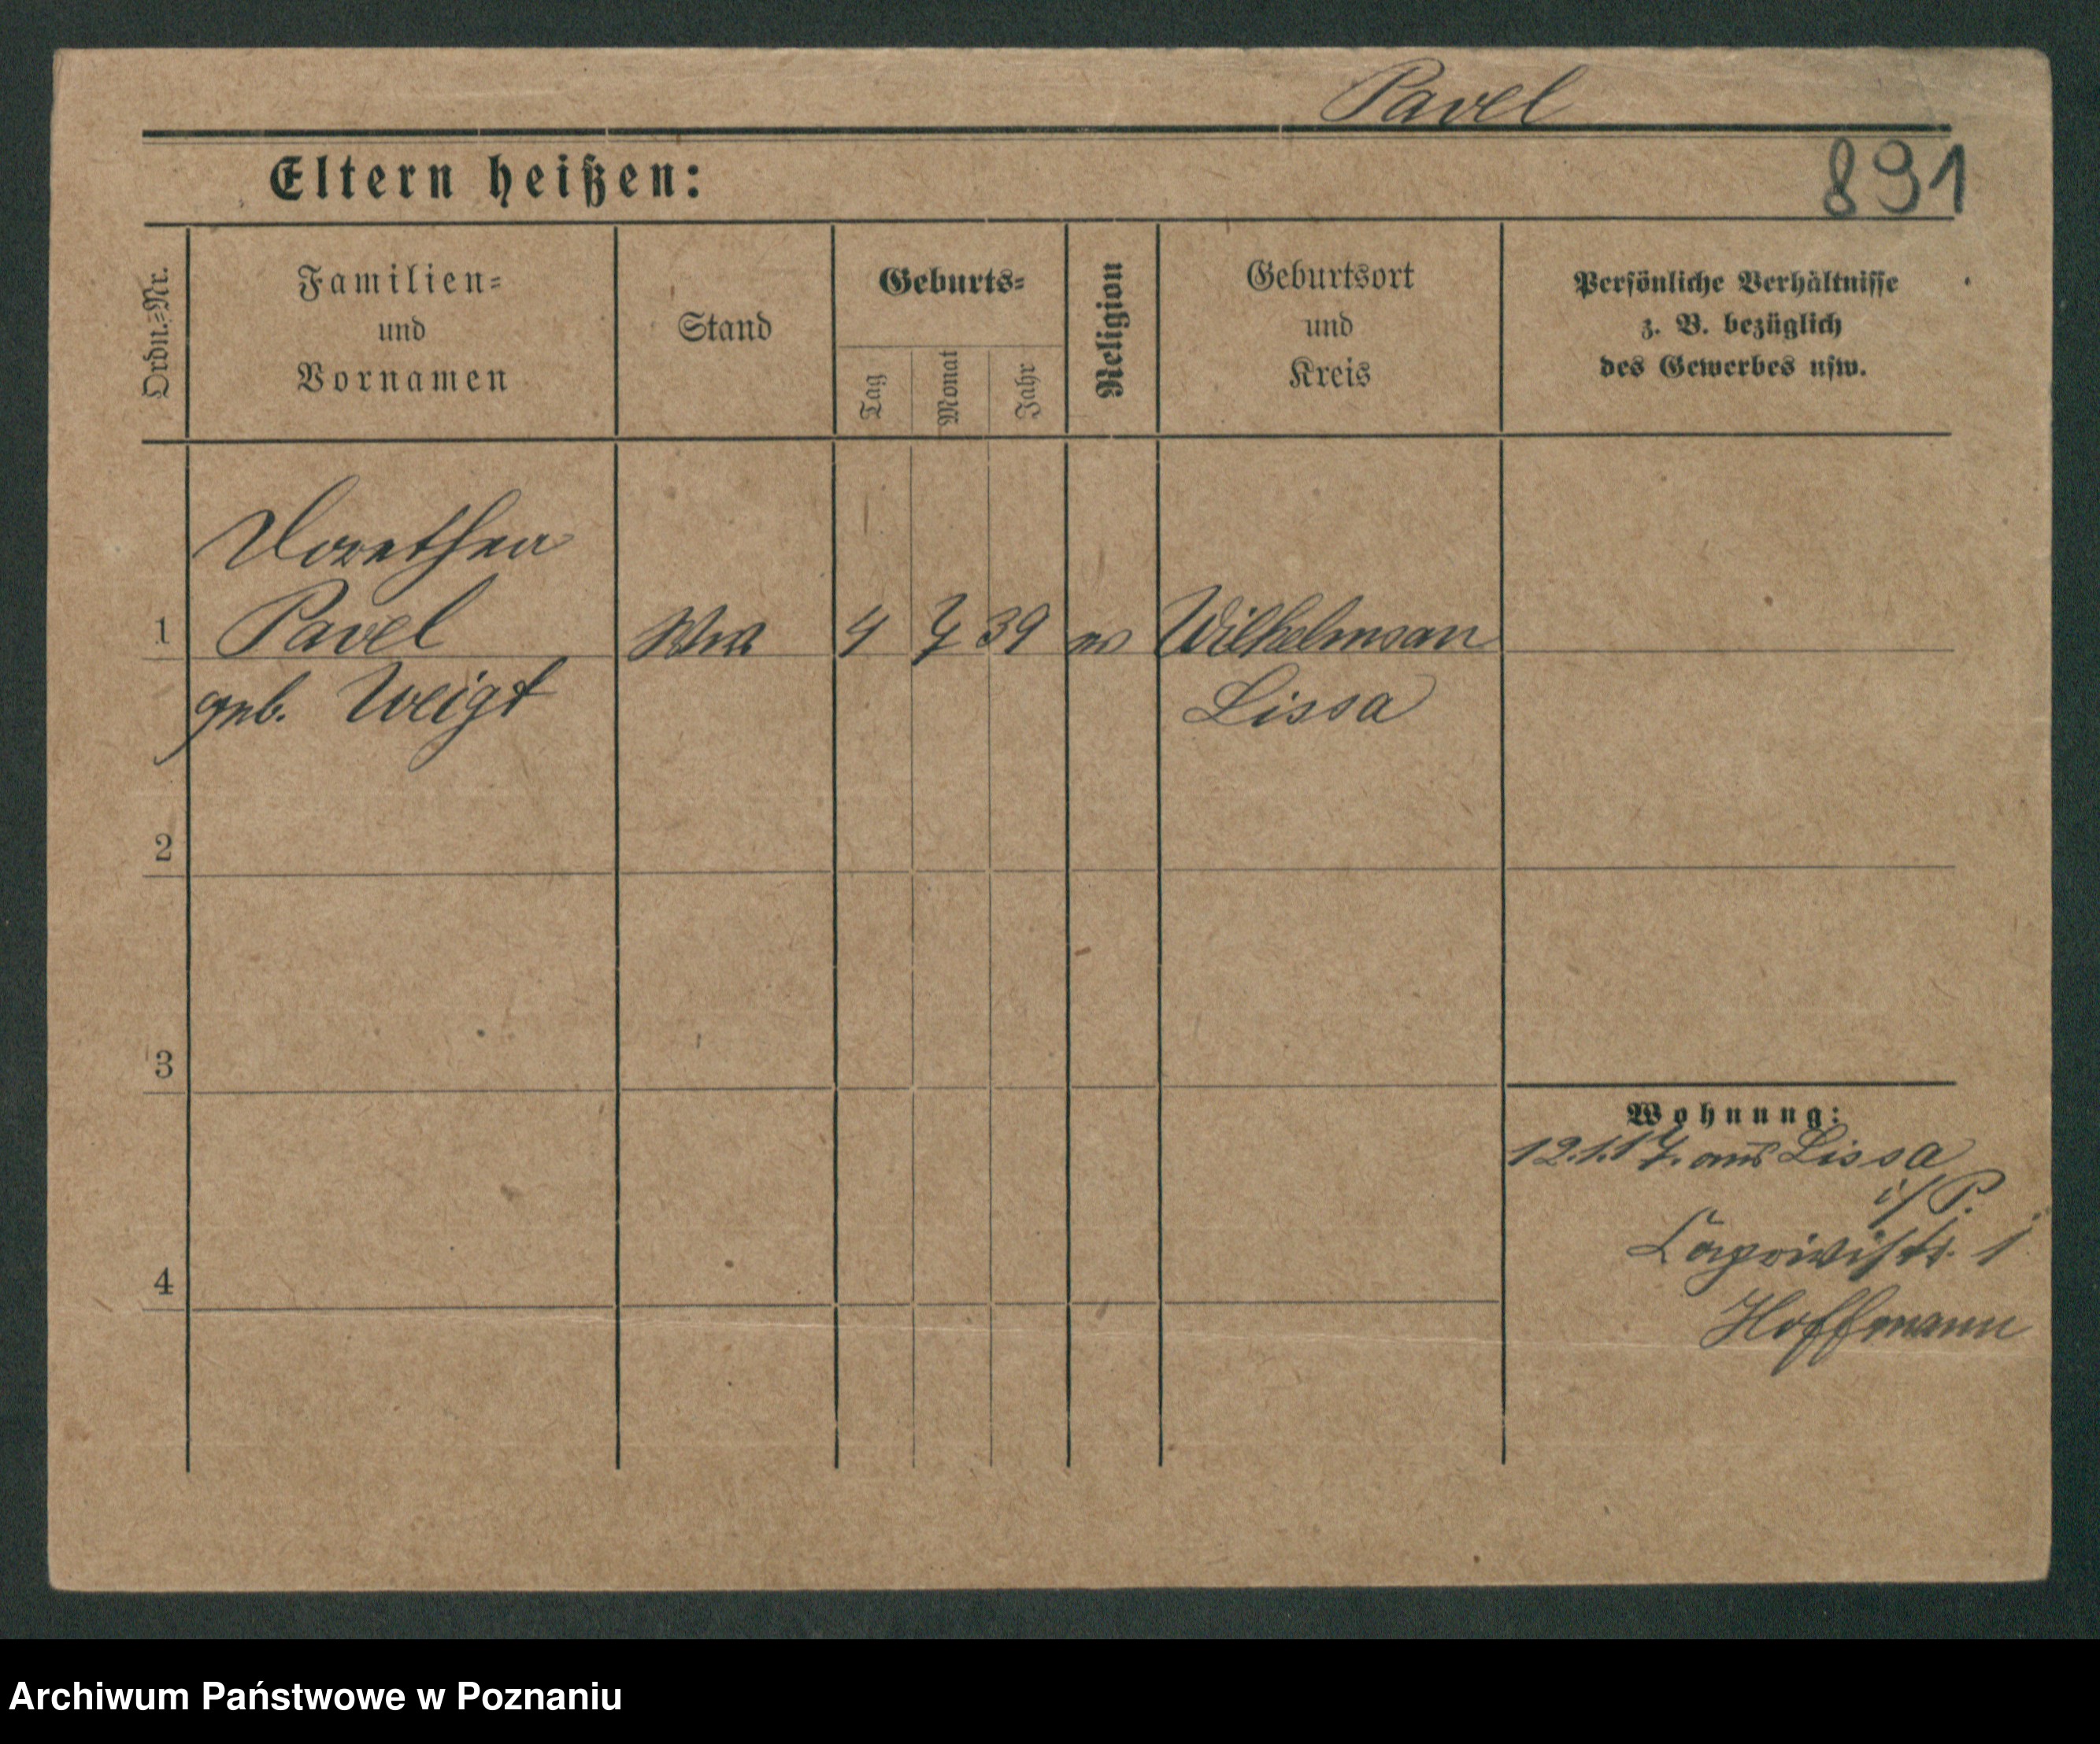 Pavel
Eltern heißen:
891
Ordn.=Nr.
Familien=
und
Vornamen
Stand
Geburts=
Tag
Monat
Jahr
Religion
Geburtsort
und
Kreis
Persönliche Verhältnisse
z. B. bezüglich
des Gewerbes usw.
Dorothea
1 Pavel Ww 4 7 39 ev Wilhelmsau
geb. Weigt Lissa
2
3
Wohnung:
12.1.17. aus Lissa
i/P.
Caprivistr. 1
4
Hoffmann
Archiwum Państwowe w Poznaniu